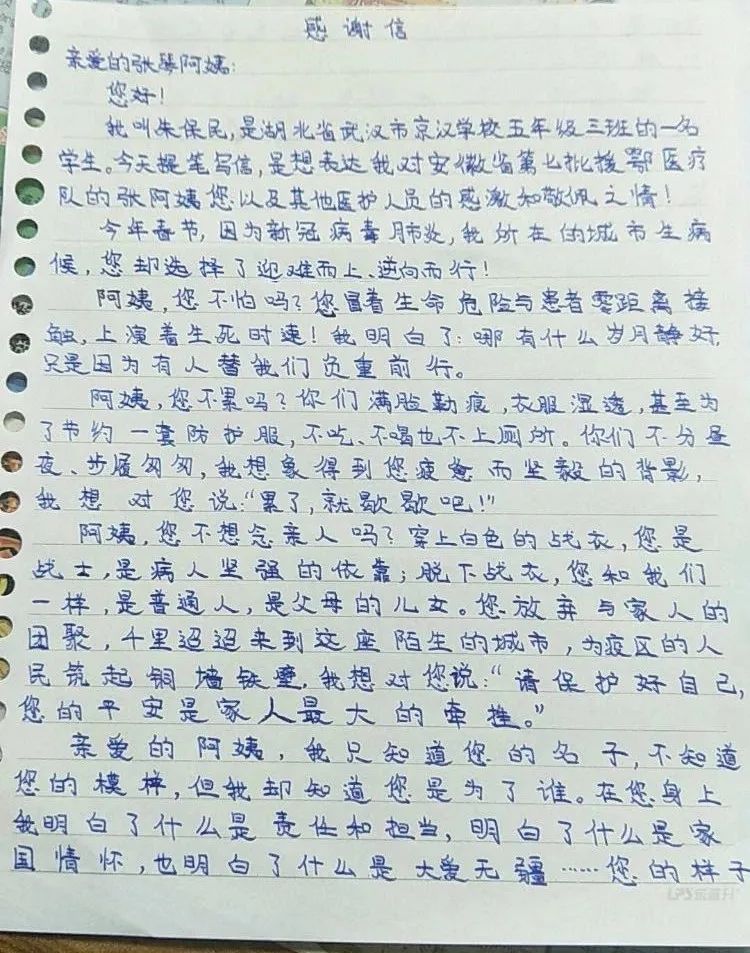 感谢信
亲爱的张琴阿姨:
您好!
我叫朱保民,是湖北省武汉市京汉学校五年级三班的一名
学生。今天提笔写信,是想表达我对安徽省第七批援鄂医疗
队的张阿姨您以及其他医护人员的感激和敬佩之情!
今年春节,因为新冠病毒肺炎,我所在的城市生病
候,您却选择了迎难而上、逆向而行!
阿姨,您不怕吗?您冒着生命危险与患者零距离接
触,上演着生死时速!我明白了:哪有什么岁月静好,
只是因为有人替我们负重前行。
阿姨,您不累吗?你们满脸勒痕,衣服湿透,甚至为
了节约一套防护服,不吃、不喝也不上厕所。你们不分昼
夜、步履匆匆,我想象得到您疲惫而坚毅的背影,
我想对您说:“累了,就歇歇吧!”
阿姨,您不想念亲人吗?穿上白色的战衣,您是
战士,是病人坚强的依靠;脱下战衣,您和我们
一样,是普通人,是父母的儿女。您放弃与家人的
团聚,千里迢迢来到这座陌生的城市,为疫区的人
民筑起铜墙铁壁,我想对您说:“请保护好自己,
您的平安是家人最大的牵挂。”
亲爱的阿姨,我只知道您的名子,不知道
您的模样,但我却知道您是为了谁。在您身上
我明白了什么是责任和担当,明白了什么是家
国情怀,也明白了什么是大爱无疆……您的样子